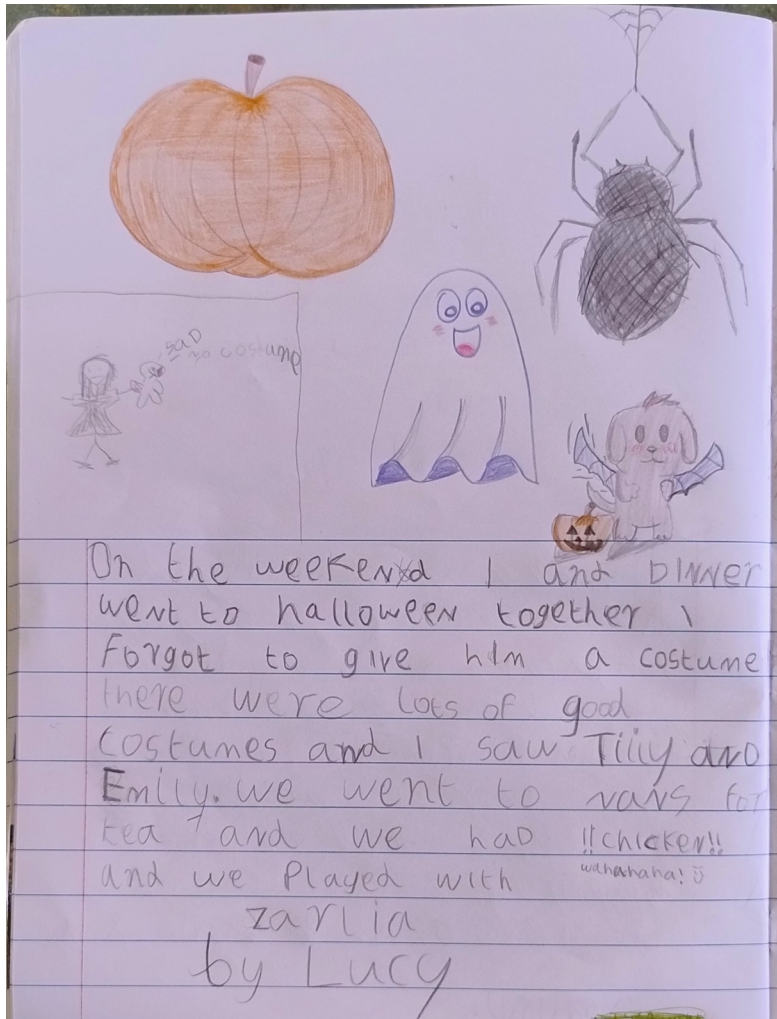 SAD
no costume
On the weekend I and DINNER
went to halloween together I
Forgot to give him a costume
there were lots of good
costumes and I saw Tilly and
Emily. we went to nans for
tea and we had !!chicken!!
and we Played with wahahaha!
zarlia
by Lucy